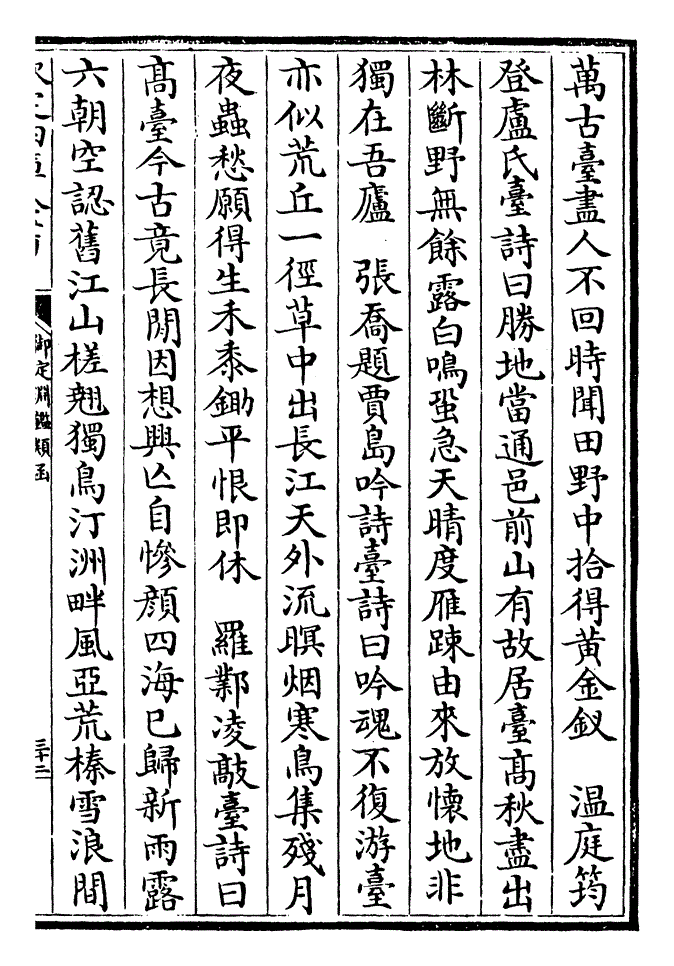 萬古臺盡人不回時聞田野中拾得黃金釵　溫庭筠
登盧氏臺詩曰勝地當通邑前山有故居臺髙秋盡出
林斷野無餘露白鳴蛩急天晴度雁踈由來放懷地非
獨在吾廬　張喬題賈島吟詩臺詩曰吟魂不復游臺
亦似荒丘一徑草中出長江天外流暝烟寒鳥集殘月
夜蟲愁願得生禾黍鋤平恨即休　羅鄴凌敲臺詩曰
髙臺今古竟長閒因想興亡自慘顔四海已歸新雨露
六朝空認舊江山槎翹獨鳥汀洲畔風亞荒榛雪浪間
御定淵鑑類函
三十二